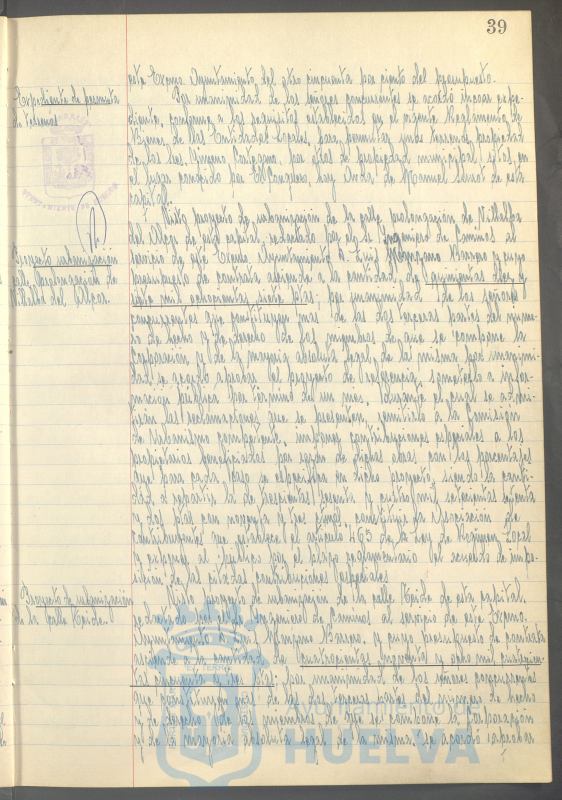 39
este Excmo Ayuntamiento del otro cincuenta por ciento del presupuesto.
Expediente de permuta
de terrenos
Por unanimidad de los señores concurrentes se acordó incoar expe-
diente, conforme a los requisitos establecidos en el vigente Reglamento de
Bienes de las Entidades Locales, para permutar unos terrenos propiedad
de los Sres. Jimeno Cartagena, por otros de propiedad municipal sitos en
el lugar conocido por El Conquero, hoy Avda de Manuel Siurot de esta
capital.
Proyecto urbanización
calle Prolongación de
Villalba del Alcor.
Visto proyecto de urbanización de la calle prolongación de Villalba
del Alcor de esta capital, redactado por el Sr. Ingeniero de Caminos al
servicio de este Excmo Ayuntamiento D. Luis Manzano Barrero y cuyo
presupuesto de contrata asciende a la cantidad de
mil ochocientas siete ptas; por unanimidad de los señores
concurrentes que constituyen más de las dos terceras partes del núme-
ro de hecho y de derecho de los miembros de que se compone la
Corporación y de la mayoría absoluta legal de la misma por unanimi-
dad se acordó aprobar el proyecto de referencia, someterlo a infor-
mación pública por término de un mes, durante el cual se admi-
tirán las reclamaciones que se presenten, remitirlo a la Comisión
de Urbanismo competente, imponer contribuciones especiales a los
propietarios beneficiados por razón de dichas obras con los porcentajes
que para cada caso se especifica en dicho proyecto, siendo la canti-
dad a repartir la de trescientas sesenta y cuatro mil setecientas setenta
y dos ptas con noventa y tres ctmos, constituir la Asociación de
Contribuyentes que establece el artículo 465 de la Ley de Régimen Local
y exponer al público por el plazo reglamentario el acuerdo de impo-
sición de las citadas contribuciones especiales
Proyecto de urbanización
de la Calle
Visto proyecto de urbanización de la calle de esta capital,
redactado por el Sr. Ingeniero de Caminos al servicio de este Excmo.
Ayuntamiento D. Luis Manzano Barrero, y cuyo presupuesto de contrata
asciende a la cantidad de cuatrocientas cincuenta y ocho mil
ptas; por unanimidad de los señores concurrentes
que constituyen más de las dos terceras partes del número de hecho
y de derecho de los miembros de que se compone la Corporación
y de la mayoría absoluta legal de la misma, se acordó aprobar
Ayuntamiento de
HUELVA